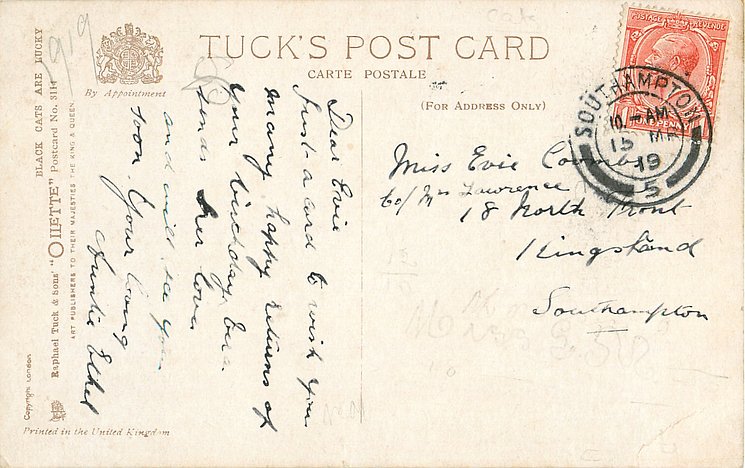 TUCK'S POST CARD
CARTE POSTALE
(FOR ADDRESS ONLY)
By Appointment
BLACK CATS ARE LUCKY
Raphael Tuck & Sons' "OILETTE" Postcard No. 3114
ART PUBLISHERS TO THEIR MAJESTIES THE KING & QUEEN.
Copyright London
Printed in the United Kingdom
919
Dear Evie
Just a card to wish you
many happy returns of
your birthday.
sends her love
and will see you
soon. Your loving
Auntie Ethel
POSTAGE REVENUE
SOUTHAMPTON
10 - AM
15 MR
19
5
Miss Evie Coombs
c/o Mrs Lawrence
18 North Front
Kingsland
Southampton